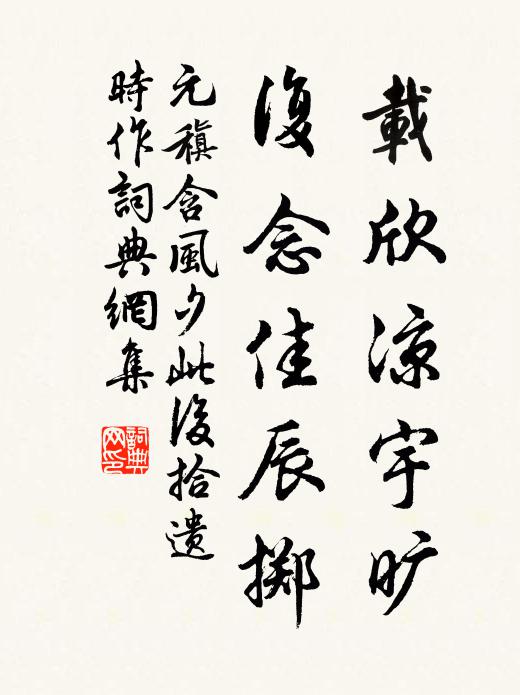 載欣涼宇旷
復念佳辰掷
元稹含風夕此後拾遺
時作詞典網集
詞典网印